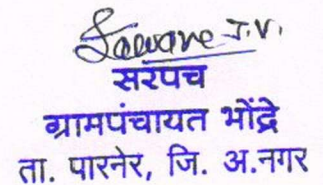 J.V.
सरपच
ग्रामपंचायत भोंद्रे
ता. पारनेर, जि. अ.नगर